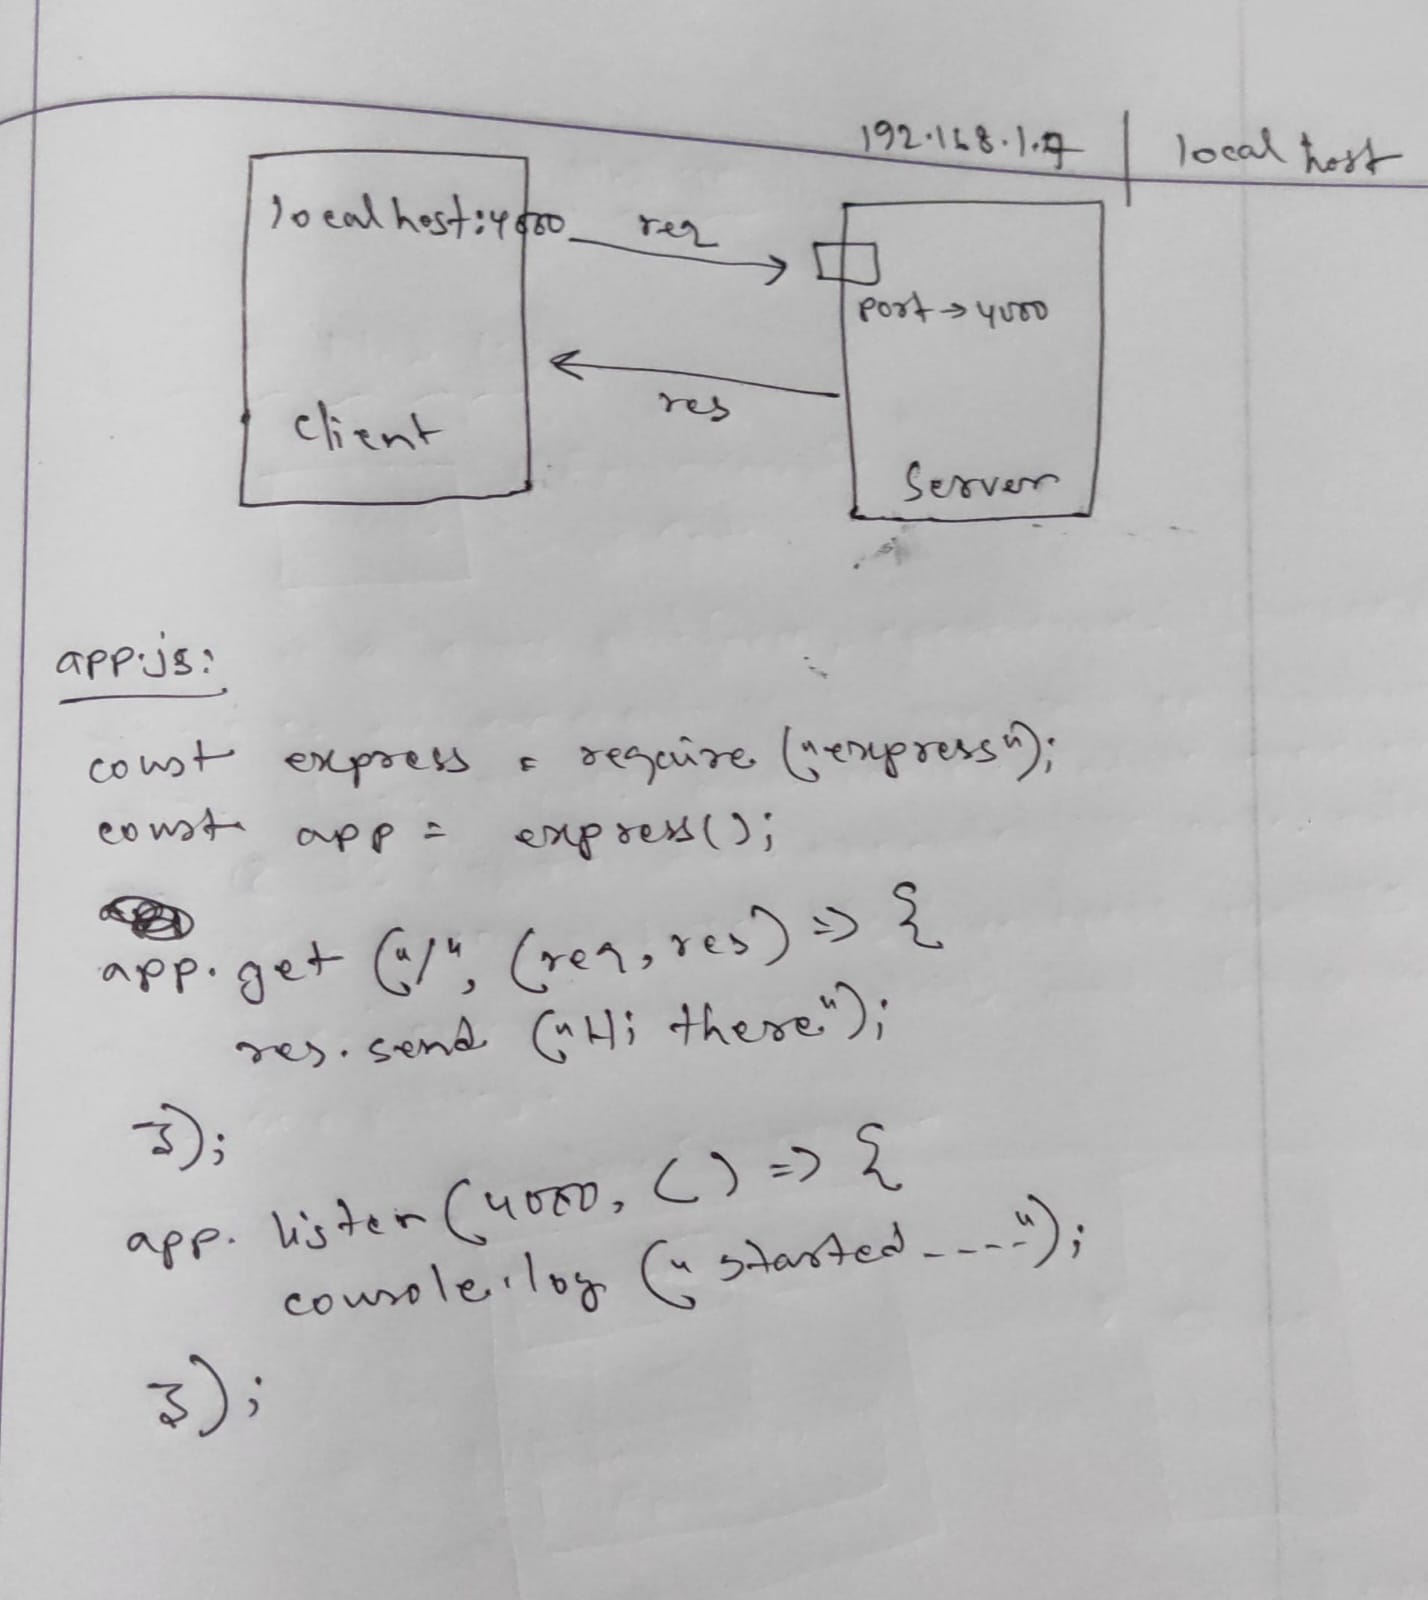 192.168.1.7 | localhost
localhost:4000 req
port → 4000
res
client
Server
app.js:
const express = require ("express");
const app = express();
app.get ("/", (req, res) => {
res.send ("Hi there");
});
app.listen (4000, () => {
console.log ("started ----");
});